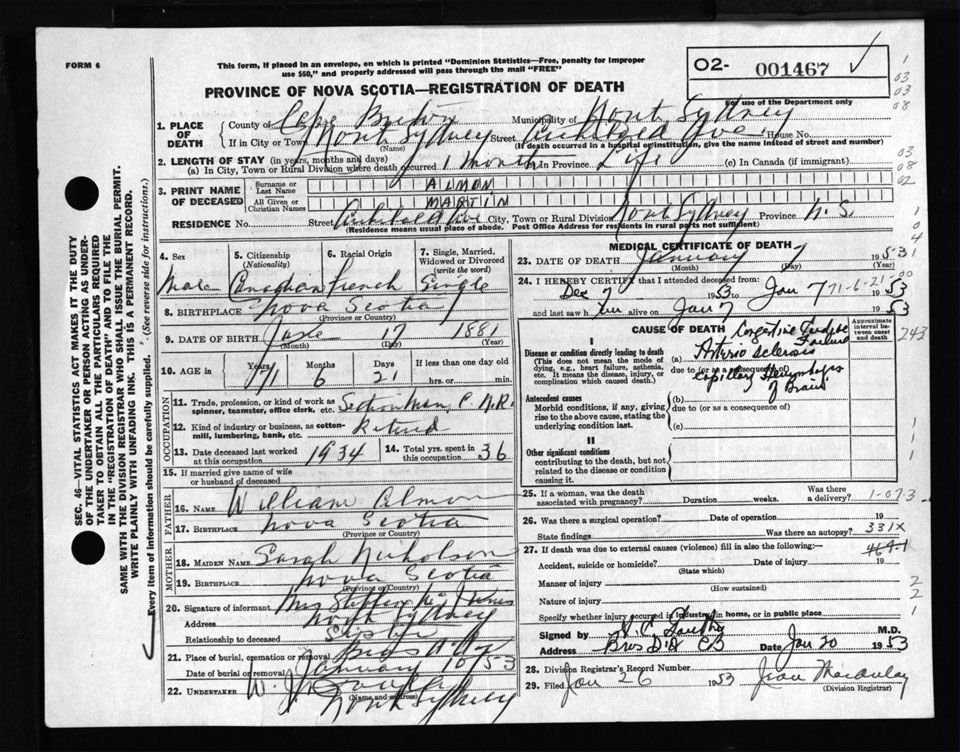 FORM 6
This form, if placed in an envelope, on which is printed "Dominion Statistics—Free, penalty for improper
use $50," and properly addressed will pass through the mail "FREE"
PROVINCE OF NOVA SCOTIA—REGISTRATION OF DEATH
02- 001467
For use of the Department only
1. PLACE OF DEATH County of Cape Breton Municipality of North Sydney
If in City or Town North Sydney Street Archibald Ave House No.
(Name) (If death occurred in a hospital or institution, give the name instead of street and number)
2. LENGTH OF STAY (in years, months and days)
(a) In City, Town or Rural Division where death occurred 1 month In Province Life (c) In Canada (if immigrant)
3. PRINT NAME OF DECEASED Surname or Last Name ALMON
All Given or Christian Names MARTIN
RESIDENCE No. Street Archibald Ave City, Town or Rural Division North Sydney Province N.S.
(Residence means usual place of abode. Post Office Address for residents in rural parts not sufficient)
4. Sex Male
5. Citizenship (Nationality) Canadian
6. Racial Origin French
7. Single, Married, Widowed or Divorced (write the word) Single
8. BIRTHPLACE Nova Scotia
(Province or Country)
9. DATE OF BIRTH 1881
(Month) (Day) (Year)
10. AGE in Years 71 Months 6 Days 21 If less than one day old
hrs. or min.
OCCUPATION
11. Trade, profession or kind of work as spinner, teamster, office clerk, etc. Section Man, C.N.R.
12. Kind of industry or business, as cotton-mill, lumbering, bank, etc. Retired
13. Date deceased last worked at this occupation 1934
14. Total yrs. spent in this occupation 36
15. If married give name of wife or husband of deceased
FATHER
16. Name William Almon
17. Birthplace Nova Scotia
(Province or Country)
MOTHER
18. Maiden Name Sarah Nicholson
19. Birthplace Nova Scotia
(Province or Country)
20. Signature of informant Mrs Stephen
Address North Sydney
Relationship to deceased Sister
21. Place of burial, cremation or removal
Date of burial or removal January 10/53
22. UNDERTAKER W. J.
(Name and address) North Sydney
MEDICAL CERTIFICATE OF DEATH
23. DATE OF DEATH January 7 1953
(Month) (Day) (Year)
24. I HEREBY CERTIFY that I attended deceased from:
Dec 7 1953 to Jan 7 1953
71-6-21
and last saw him alive on Jan 7 1953
CAUSE OF DEATH
Approximate interval between onset and death
I
Disease or condition directly leading to death
(This does not mean the mode of dying, e.g., heart failure, asthenia, etc. It means the disease, injury, or complication which caused death.)
Congestive Cardiac Failure
(a) Arterio Sclerosis
due to (or as a consequence of)
Capillary of Brain
Antecedent causes
Morbid conditions, if any, giving rise to the above cause, stating the underlying condition last.
(b)
due to (or as a consequence of)
(c)
II
Other significant conditions
contributing to the death, but not related to the disease or condition causing it.
25. If a woman, was the death associated with pregnancy? Duration weeks. Was there a delivery? 1-07-3
26. Was there a surgical operation? Date of operation 19
State findings Was there an autopsy? 331X
27. If death was due to external causes (violence) fill in also the following:—
Accident, suicide or homicide? Date of injury 19
(State which)
Manner of injury
(How sustained)
Nature of injury
Specify whether injury occurred in industry, in home, or in public place
Signed by M.D.
Address Date Jan 20 1953
28. Division Registrar's Record Number
29. Filed Jan 26 1953 Jean Macaulay
(Division Registrar)
SEC. 46—VITAL STATISTICS ACT MAKES IT THE DUTY
OF THE UNDERTAKER OR PERSON ACTING AS UNDER-
TAKER TO OBTAIN ALL THE PARTICULARS REQUIRED
IN THE "REGISTRATION OF DEATH" AND TO FILE THE
SAME WITH THE DIVISION REGISTRAR WHO SHALL ISSUE THE BURIAL PERMIT.
WRITE PLAINLY WITH UNFADING INK. THIS IS A PERMANENT RECORD.
Every item of information should be carefully supplied. (See reverse side for instructions.)
1
03
03
08
03
08
02
1
0
4
243
1
1
1
2
2
1